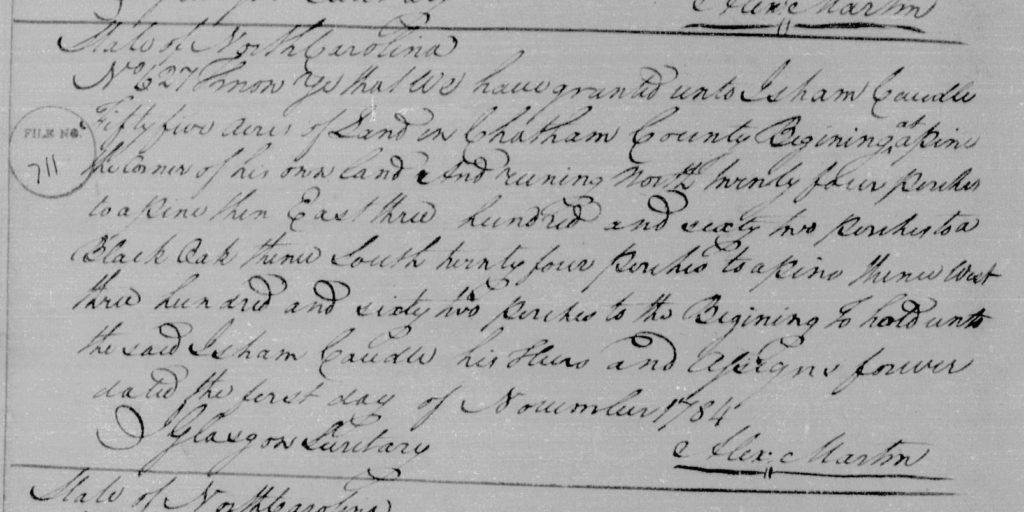 Alex: Martin
State of North Carolina
No 627 Know Ye that We have granted unto Isham Caudle
Fifty five acres of Land in Chatham County Begining at a pine
FILE NO.
711
the Corner of his own land And runing North twenty four perches
to a pine then East three hundred and sixty two perches to a
Black Oak thence South twenty four perches to a pine thence West
three hundred and sixty two perches to the Begining To hold unto
the said Isham Caudle his Heirs and Assigns forever
dated the first day of November 1784
J Glasgow Secretary
Alex: Martin
State of North Carolina